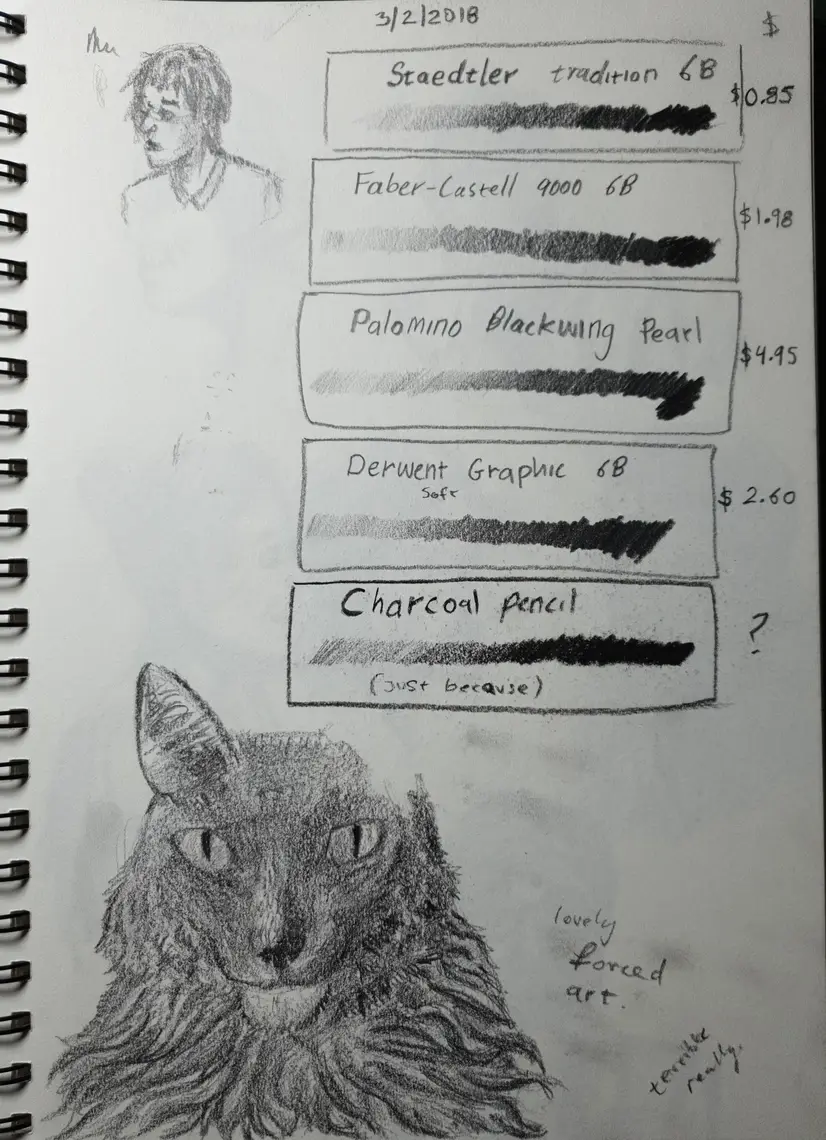 3/2/2018
$
Staedtler tradition 6B
$0.85
Faber-Castell 9000 6B
$1.98
Palomino Blackwing Pearl
$4.95
Derwent Graphic 6B
Soft
$ 2.60
Charcoal pencil
?
(just because)
lovely
forced
art.
terrible
really.